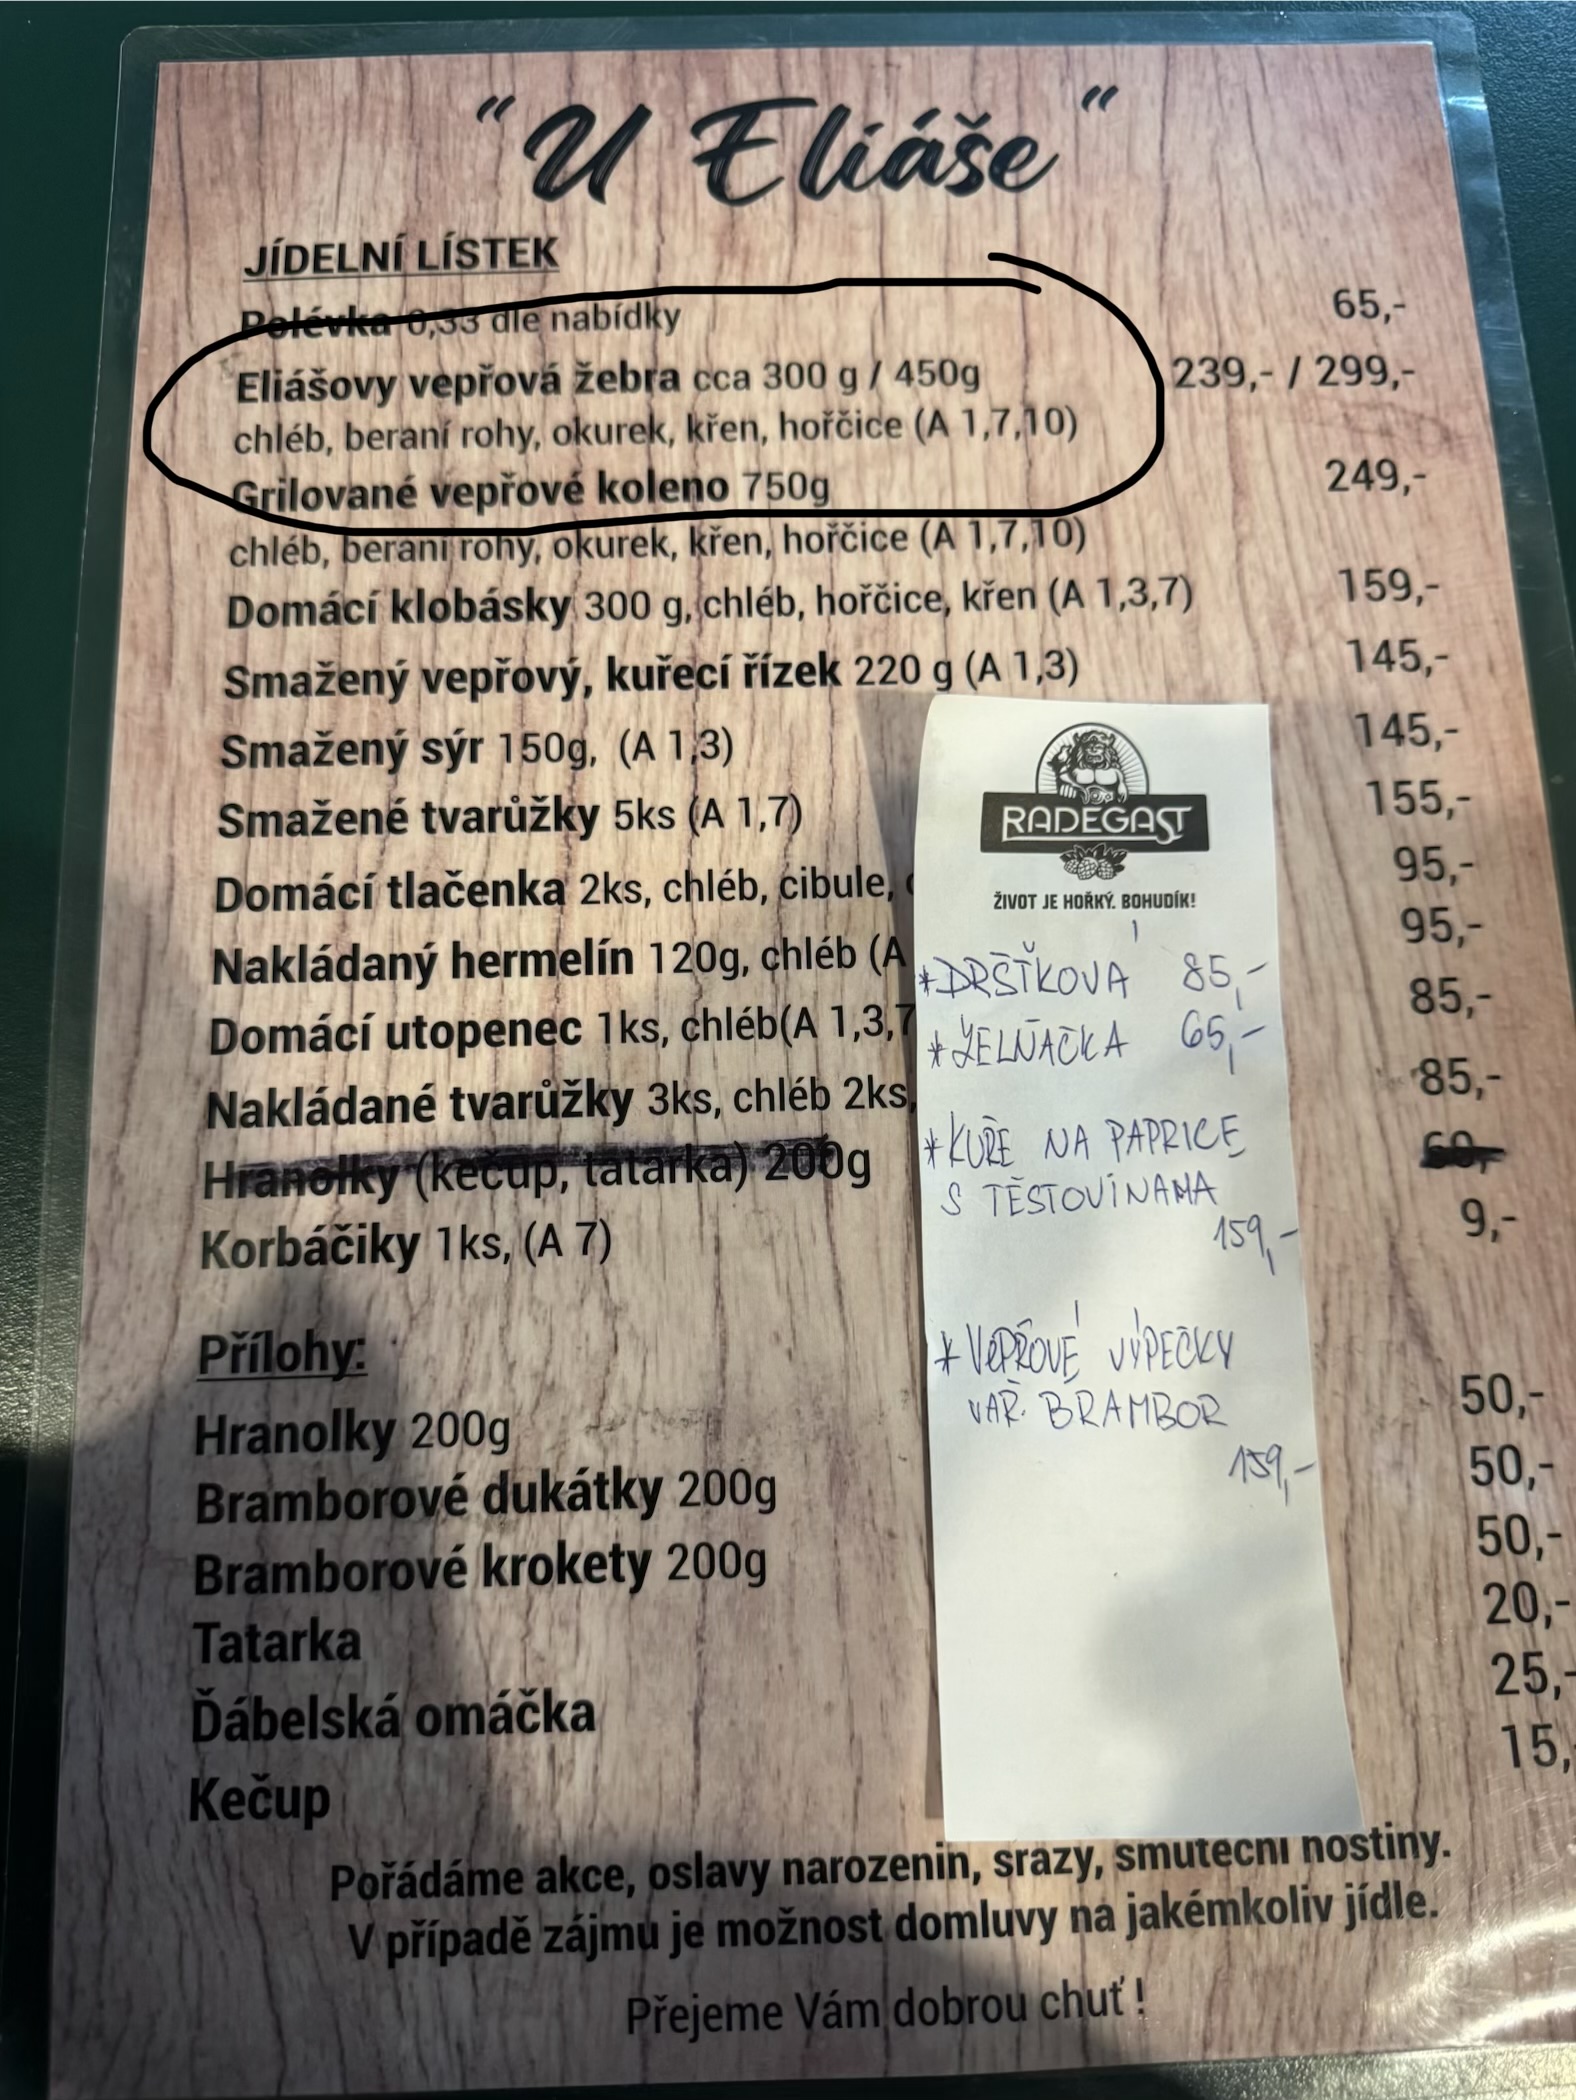 "U Eliáše"
JÍDELNÍ LÍSTEK
Polévka 0,33 dle nabídky 65,-
Eliášovy vepřová žebra cca 300 g / 450g 239,- / 299,-
chléb, beraní rohy, okurek, křen, hořčice (A 1,7,10)
Grilované vepřové koleno 750g 249,-
chléb, beraní rohy, okurek, křen, hořčice (A 1,7,10)
Domácí klobásky 300 g, chléb, hořčice, křen (A 1,3,7) 159,-
Smažený vepřový, kuřecí řízek 220 g (A 1,3) 145,-
Smažený sýr 150g, (A 1,3) 145,-
Smažené tvarůžky 5ks (A 1,7) 155,-
Domácí tlačenka 2ks, chléb, cibule, 95,-
Nakládaný hermelín 120g, chléb (A 95,-
Domácí utopenec 1ks, chléb(A 1,3,7 85,-
Nakládané tvarůžky 3ks, chléb 2ks, 85,-
Hranolky (kečup, tatarka) 200g 60,-
Korbáčiky 1ks, (A 7) 9,-
Přílohy:
Hranolky 200g 50,-
Bramborové dukátky 200g 50,-
Bramborové krokety 200g 50,-
Tatarka 20,-
Ďábelská omáčka 25,-
Kečup 15,-
RADEGAST
ŽIVOT JE HOŘKÝ. BOHUDÍK!
*DRŠŤKOVÁ 85,-
*ZELŇAČKA 65,-
*KUŘE NA PAPRICE
S TĚSTOVINAMA
159,-
*VEPŘOVÉ VÝPEČKY
VAŘ. BRAMBOR
159,-
Pořádáme akce, oslavy narozenin, srazy, smuteční hostiny.
V případě zájmu je možnost domluvy na jakémkoliv jídle.
Přejeme Vám dobrou chuť !